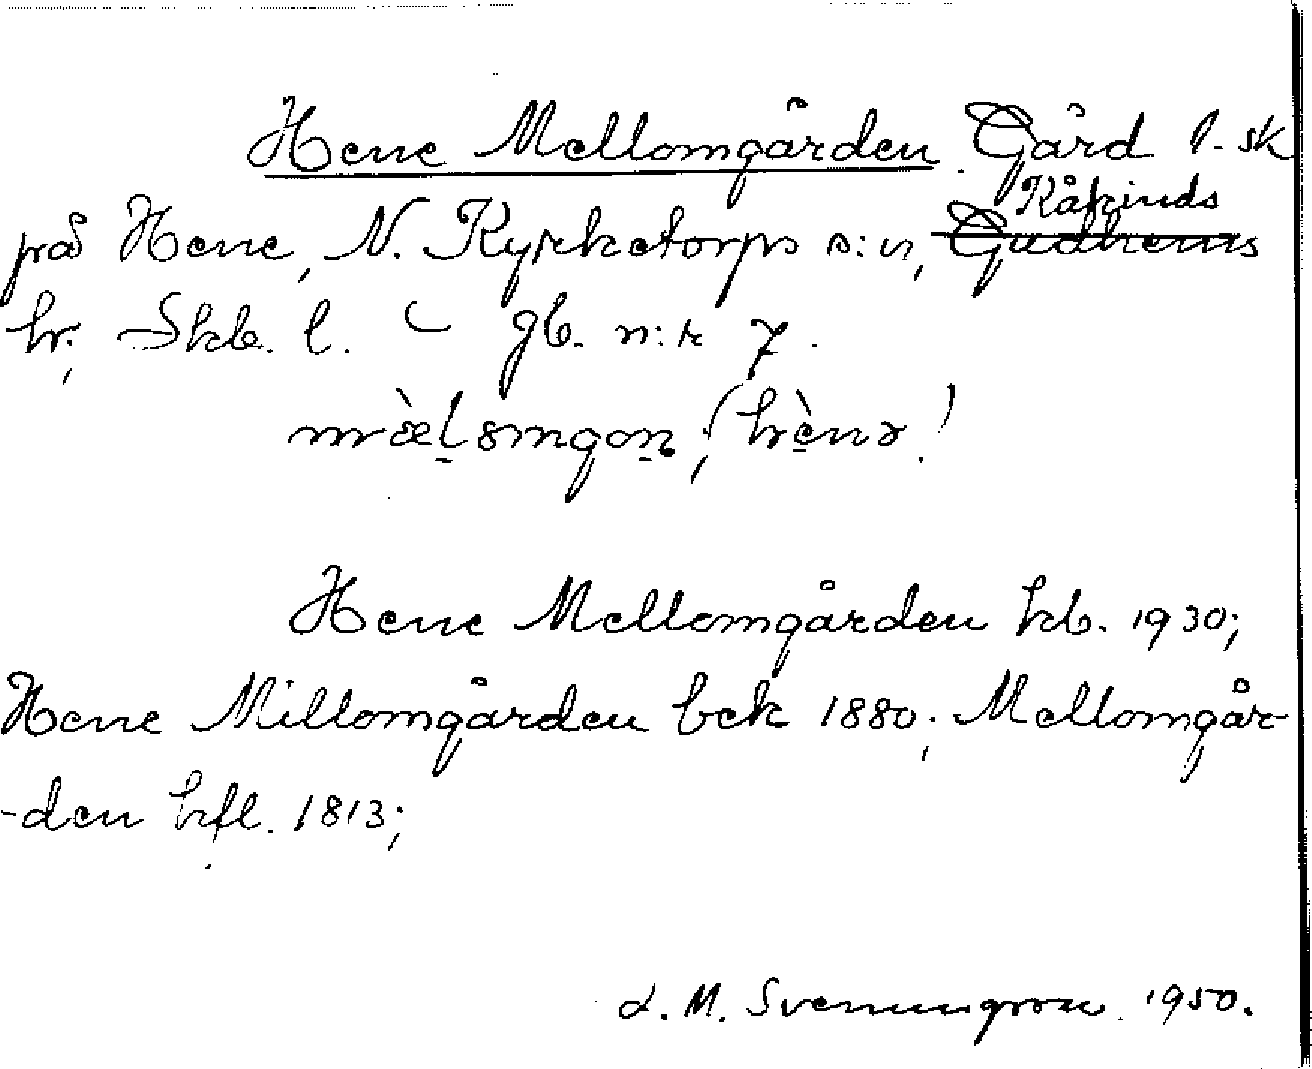 Hene Mellomgården. Gård l. sk
på Hene, N. Kyrketorps s:n, Kåkinds
hr; Skb. l. gb. n:r 7.
mæ̀lomgon; (hènə)
Hene Mellomgården kb. 1930;
Hene Millomgården bek 1880; Mellomgår-
-den hfl. 1813;
L. M. Svenungsson. 1950.